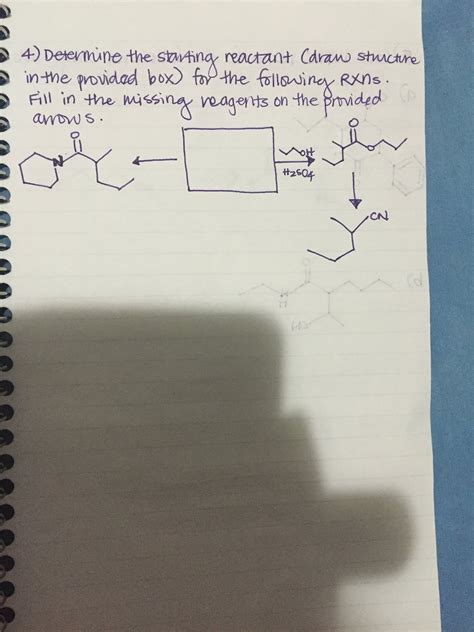 4.) Determine the starting reactant (draw structure
in the provided box) for the following RXNs.
Fill in the missing reagents on the provided
arrows.
O
N
OH
H2SO4
O
O
CN